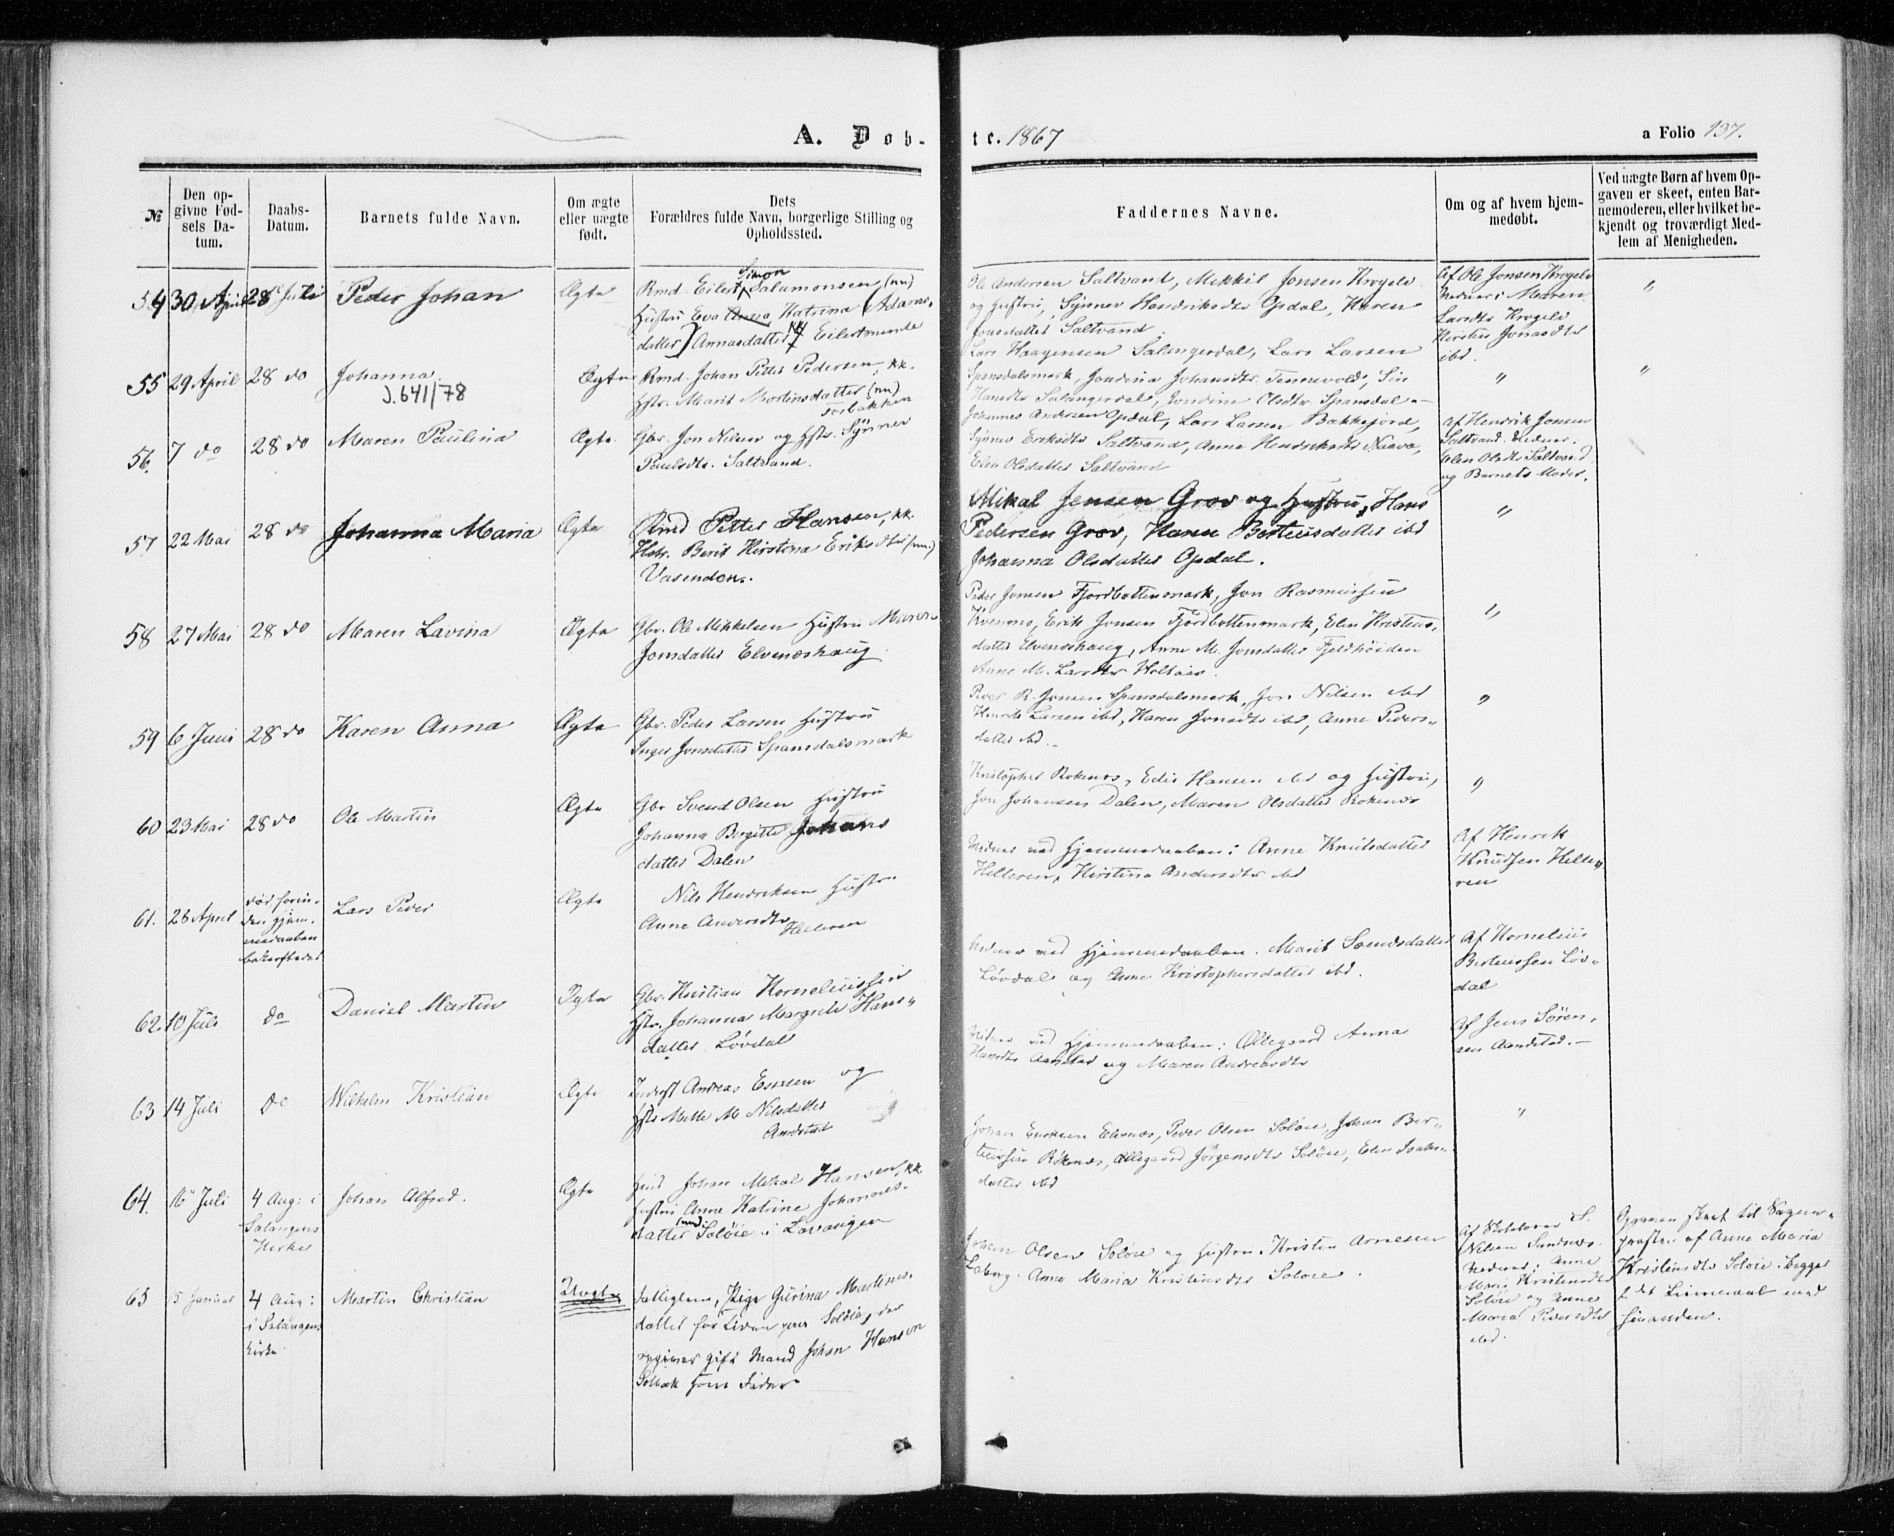 A. Døb- te. 1867
a Folio 137.
№
Den opgivne Fødsels Datum.
Daabs-Datum.
Barnets fulde Navn.
Om ægte eller uægte født.
Dets Forældres fulde Navn, borgerlige Stilling og Opholdssted.
Faddernes Navne.
Om og af hvem hjemmedøbt.
Ved uægte Børn af hvem Opgaven er skeet, enten Barnemoderen, eller hvilket bekjendt og troværdigt Medlem af Menigheden.
54 30 April 28 Juli Peder Johan Ægte
Rmd. Eilert Simon Salamonsen (nn)
Hustru Eva Anna Katrina (Adams-
datter) Annasdatter kk Eilertminde
Ole Andersen Saltvant, Mikkil Jonsen Krogelv
og Hustru, Synnev Hendriksdtr Opdal, Karen
Jonsdatter Saltvand.
Af Ole Jonsen Krogelv
Vidner: Maren
Larsdtr Krogelv
Kirsten Jonasdtr
ibd.
"
55 29 April 28 do Johanna Ægte
J. 641/78
Rmd. Johan Peter Pedersen, kk.
Hstr. Marit Mortinsdatter (nn)
Fosbakken
Lars Haagensen Salangerdal, Lars Larsen
Spansdalsmark, Jondina Johansdtr. Tennevold, Siri
Hansdtr Salangerdal, Jondine Olsdtr Spansdal
"
"
56. 7 do 28 do Maren Paulina Ægte
Gbr. Jon Nilsen og Hstr. Synnev
Paulsdtr. Saltvand.
Johannes Andersen Opdal, Lars Larsen Bakkejord,
Synnev Eriksdtr Saltvand, Anne Hendriksdtr
Elen Olsdatter Saltvand
Af Hendrik Jonsen
Saltvand. Vidner:
Elen Olsdtr Saltvand
og Barnets Moder.
57 22 Mai 28 do Johanna Maria Ægte
Rmd Petter Hansen, kk.
Hstr. Berit Kirstina Eriksdtr (nn.)
Vasenden.
Mikal Jensen Grov og Hustru, Hans
Pedersen Grov, Hanna Berteusdatter ibd
Johanna Olsdatter Opdal.
"
58 27 Mai 28 do Maren Lavina Ægte
Gbr. Ole Mikkelsen Hustru Maren
Jonsdatter Elvenæshaug
Peder Jonsen Fjordbottenmark, Jon Rasmussen
Kvernmo, Erik Jonsen Fjordbottenmark, Elen Kristens-
datter Elvenæshaug, Anne M. Jonsdatter Fjeldhøiden
Anne M. Larsdtr Holtaas.
"
59 6 Juni 28 do Karen Anna Ægte
Gbr. Peder Larsen Hustru
Inger Jonsdatter Spansdalsmark
Peder R. Jonsen Spansdalsmark, Jon Nilsen ibd
Henrik Larsen ibd, Karen Jonsdtr ibd, Anne Peders-
datter ibd.
"
60 23 Mai 28 do Ole Martin Ægte
Gbr Svend Olsen Hustru
Johanna Bergitte Johans
datter Dalen
Kristopher Rokenes, Edis Hansen ibd og Hustru,
Jon Johansen Dalen, Maren Olsdatter Rokenes
"
61. 28 April død forin-
den Hjem-
medaaben
bekræftedes Lars Peder Ægte
Nils Hendriksen Hustru
Anne Andersdtr
Helleren
Vidner ved Hjemmedaaben: Anne Knutsdatter
Helleren, Kirstina Andersdtr ibd
Af Henrik
Knudsen Helle-
ren
62. 10 Juli do Daniel Martin Ægte
Gbr. Kristian Korneliussen
Hstr. Johanna Margrete Hans-
datter Løvdal
Vidner ved Hjemmedaaben: Marit Svendsdatter
Løvdal og Anne Kristophersdatter ibd.
Af Kornelius
Berteussen Løv-
dal
63 14 Juli do Wilhelm Kristian Ægte
Inderst Andreas Ensen og
Hstr Mette M. Nilsdatter
Aandstad
Vidner ved Hjemmedaaben: Ollegaard Anna
Hansdtr Aanstad og Maren Andreasdtr
Af Jens Søren-
sen Aandstad.
64. 16 Juli 4 Aug: i
Salangens
Kirke Johan Alfred. Ægte
Johan Mikal Hansen, kk.
Hustru Anne Katrine Johannes-
datter (nn) Soløie i Lavangen
Johan Elvenæs, Peder Olsen Soløie, Johan Ber-
teussen Rokenæs, Ollegaard Jørgensdtr Soløie, Elen Isaks-
datter ibd
"
65 15 Januar 4 Aug:
i Salangens
Kirke Martin Christian Uægte
Pige Gurina Martines-
datter for Tiden paa Soløie, der
opgiver gift Mand Johan Hansen
Solbak som Fader.
Johan Olsen Soløie og Hustru, Kristen Arnesen
Laberg, Anne Maria Kristensdtr Soløie.
Af Skolelærer S.
Nilsen Sandnes.
Vidner: Anne
Maria Kristensdtr
Soløie og Anne
Maria Pedersdtr
ibd.
Opgaven skeet til Sogne-
præsten af Anne Maria
Kristensdtr Soløie. Begges
1ste Leiermaal med
hinanden.